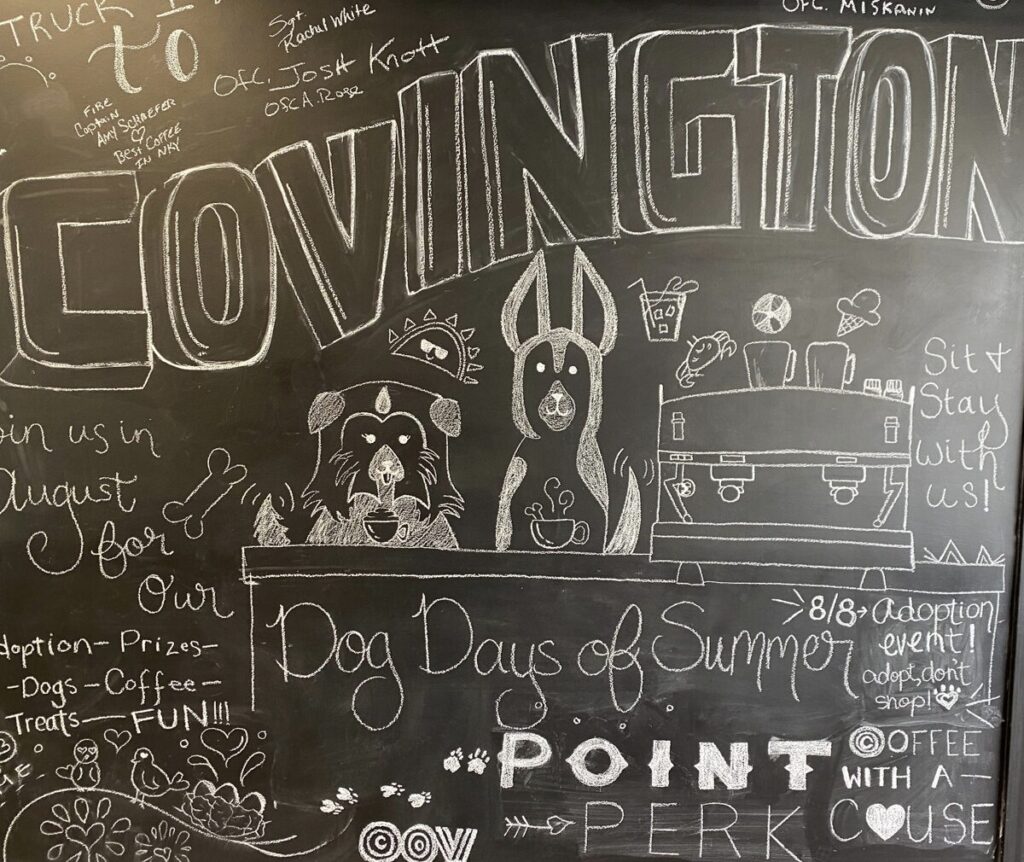 TRUCK 1
to
Sgt.
Rachel White
Ofc. Josh Knott
Ofc A. Rose
OFC. MISKANIN
FIRE
Captain
AMY SCHAEFER
BEST COFFEE
IN NKY
COVINGTON
oin us in
August
for
our
doption - Prizes -
- Dogs - Coffee -
Treats - FUN!!!
Sit +
Stay
with
us!
Dog Days of Summer
8/8 → Adoption
event!
adopt, don't
shop!
POINT
PERK
COFFEE
WITH A —
CAUSE
COV